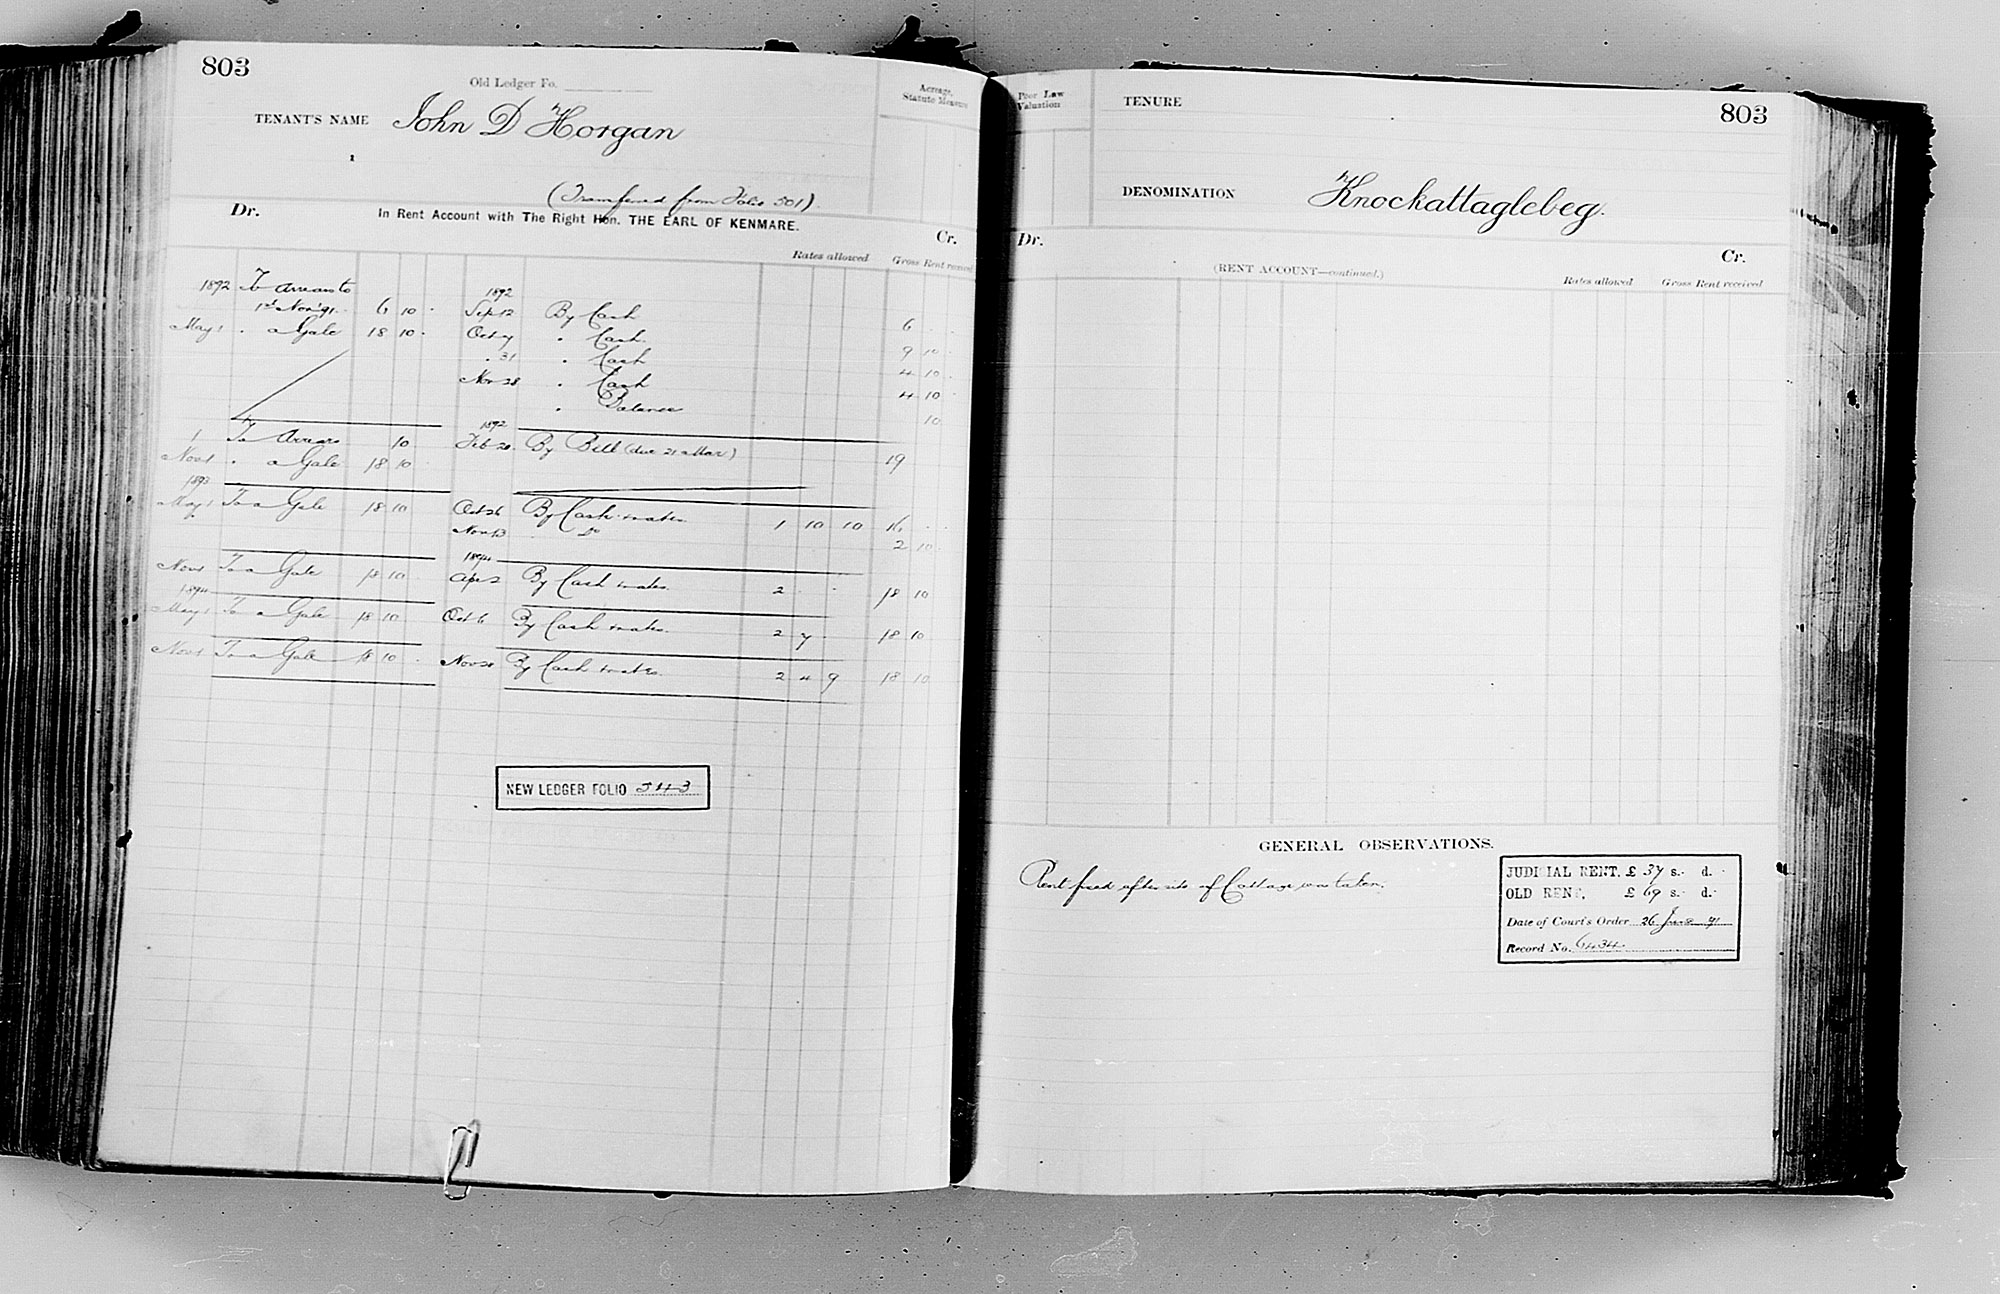 803
Old Ledger Fo.
Acreage, Statute Measure
TENANT'S NAME John D Horgan
(Transferred from Folio 501)
In Rent Account with The Right Hon. THE EARL OF KENMARE.
Dr. Cr.
Rates allowed Gross Rent received
1892 To Arrears to 1892
1st Nov '91 6 10 · Sep 12 By Cash 6 · ·
May 1 " a Gale 18 10 · Oct 7 " Cash 9 10 ·
" 31 " Cash 4 10 ·
Nov 28 " Cash 4 10 ·
" Balance 10
1892
1 To Arrears 10 Feb 20 By Bill (due 21 Mar) 19
Nov 1 " a Gale 18 10
1893
May 1 To a Gale 18 10 Oct 26 By Cash & rates 1 10 10 16 · ·
Nov 13 Do 2 10
1894
Nov 1 To a Gale 18 10 · Ap 2 By Cash & rates 2 · · 18 10
1894
May 1 To a Gale 18 10 Oct 6 By Cash & rates 2 7 · 18 10
Nov 1 To a Gale 18 10 · Nov 28 By Cash & rates 2 4 9 18 10
NEW LEDGER FOLIO 543
Poor Law Valuation
TENURE
803
DENOMINATION Knockattaglebeg.
Dr. Cr.
(RENT ACCOUNT—continued.)
Rates allowed Gross Rent received
GENERAL OBSERVATIONS.
Rent fixed after site of Cottage was taken.
JUDICIAL RENT, £ 37 s. · d. ·
OLD RENT, £ 69 s. · d. ·
Date of Court's Order 26 June 91
Record No. 6434